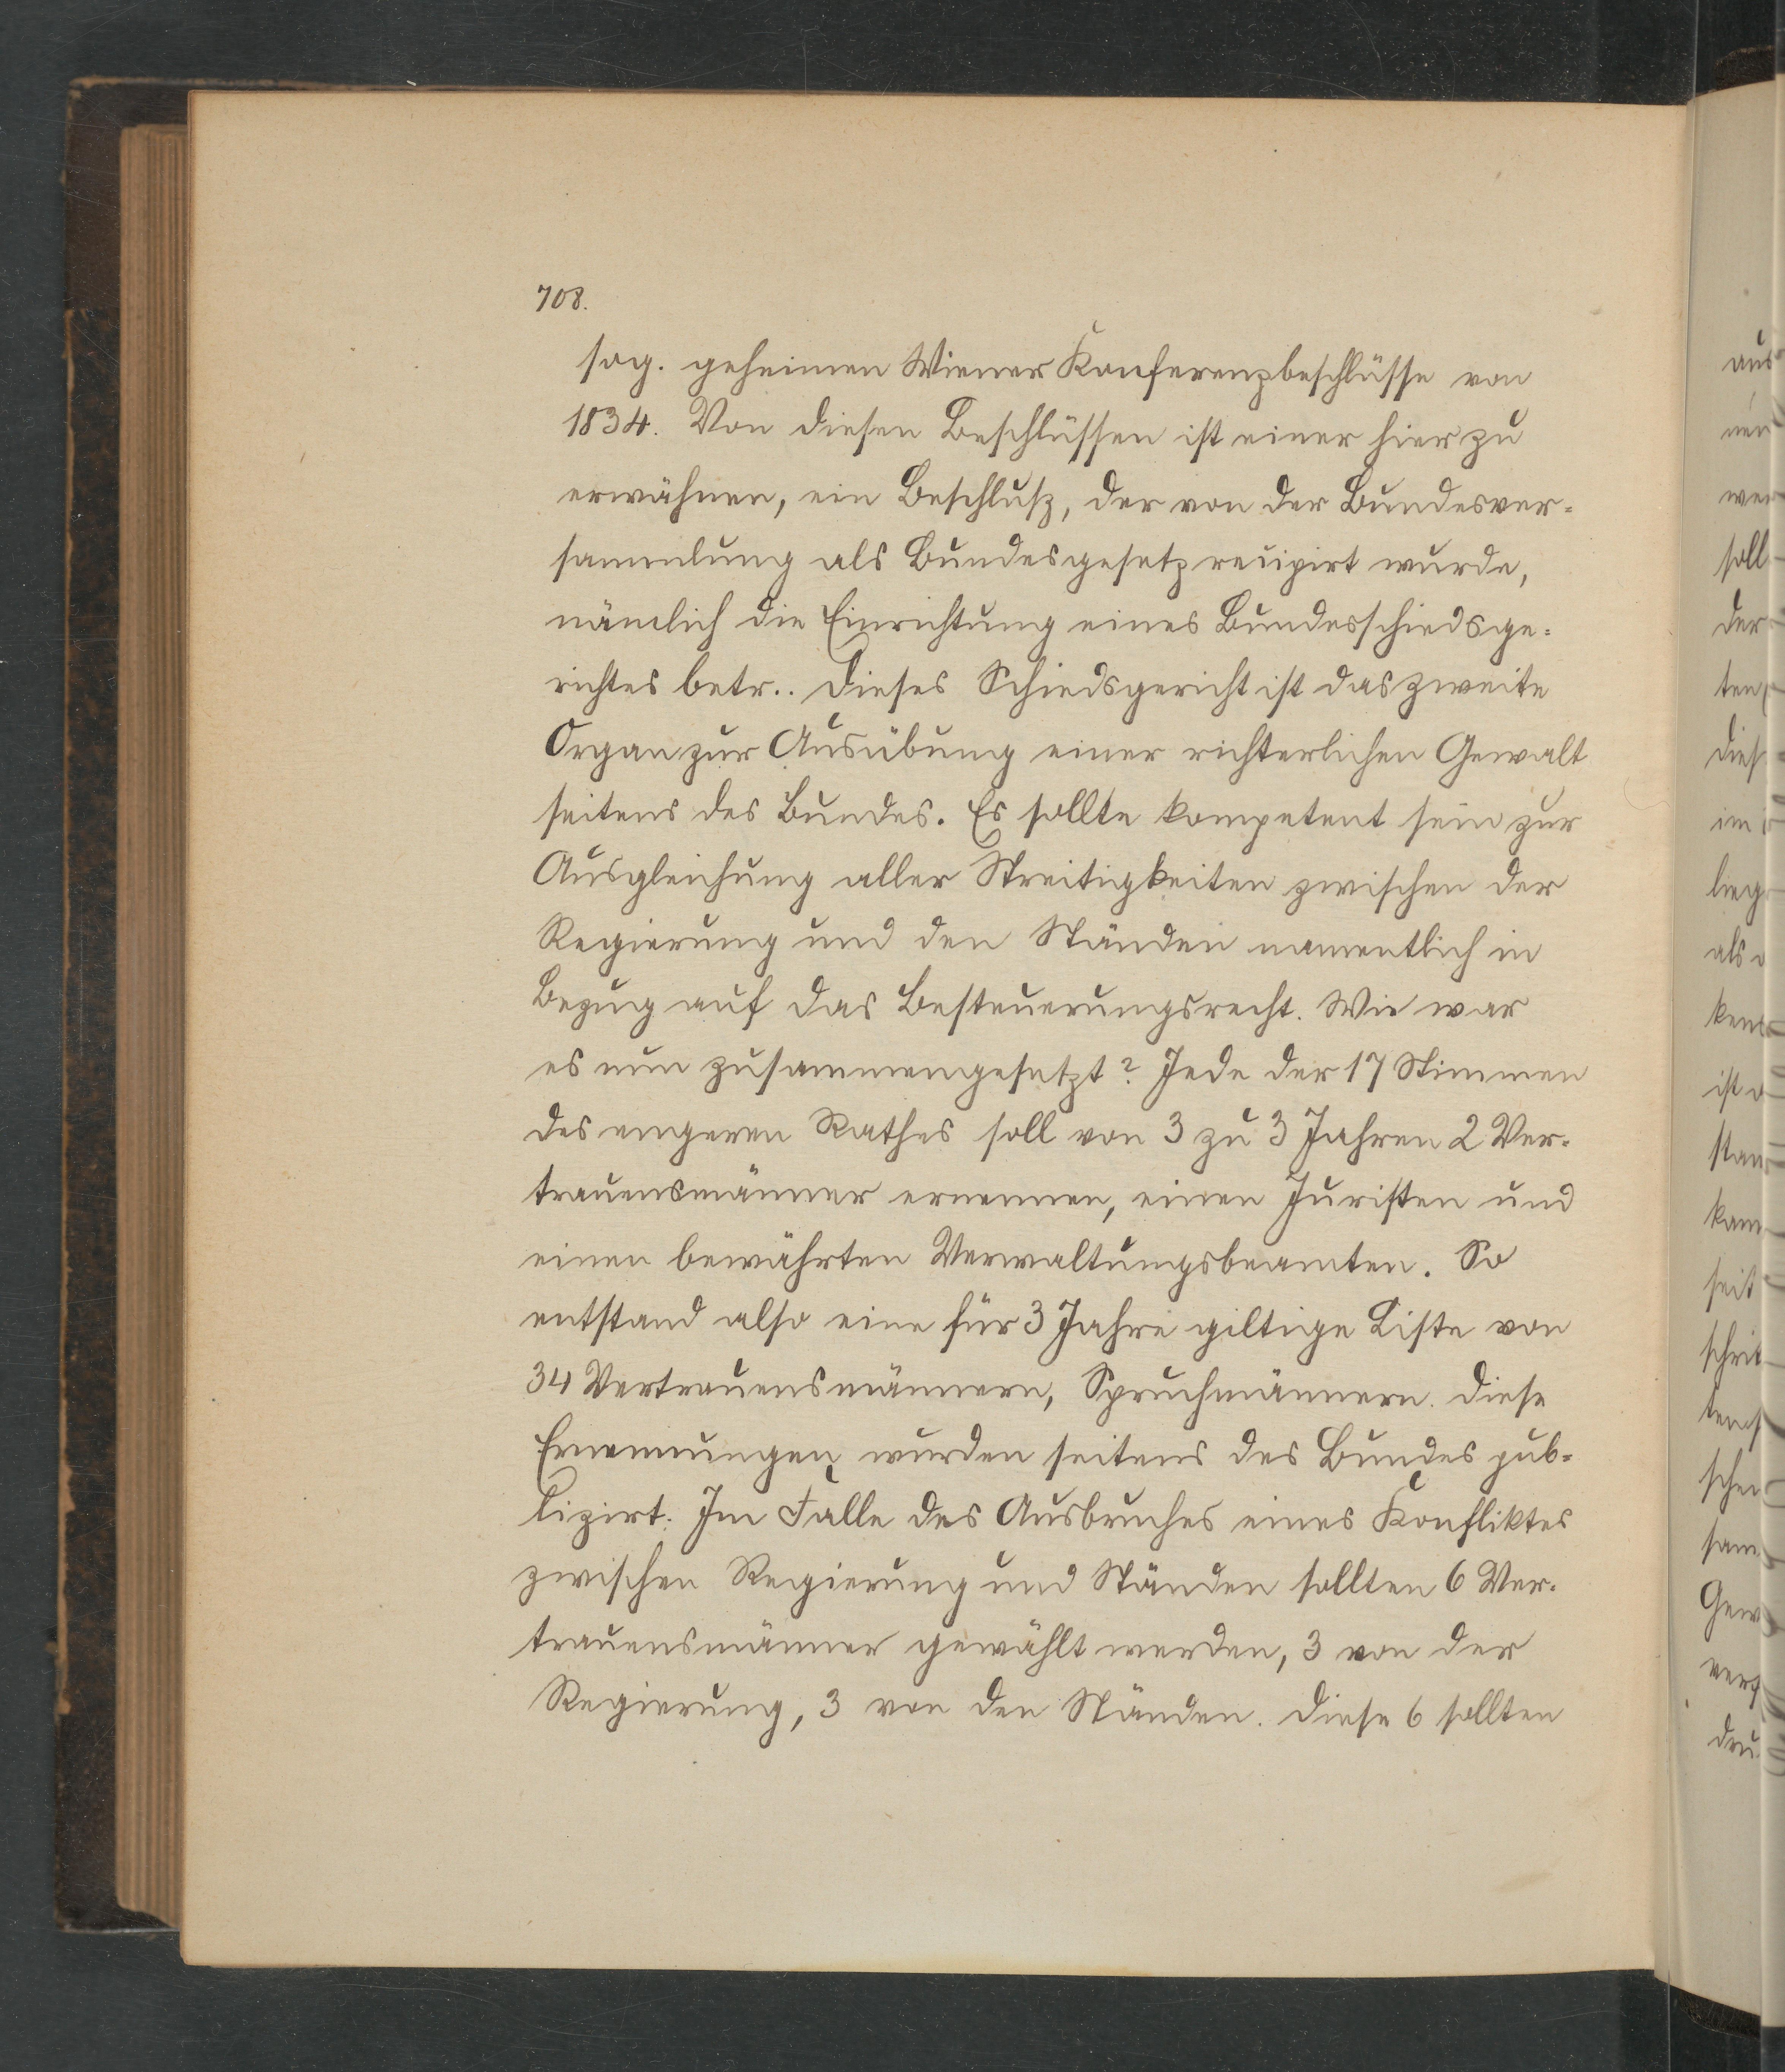 708.
sog. geheimen Wiener Konferenzbeschlüsse von
1834. Von diesen Beschlüssen ist einer hier zu
erwähnen, ein Beschluß, der von der Bundesver-
sammlung als Bundesgesetz recipirt wurde,
nämlich die Einrichtung eines Bundesschiedsge-
richtes betr.. Dieses Schiedsgericht ist das zweite
Organ zur Ausübung einer richterlichen Gewalt
seitens des Bundes. Es sollte kompetent sein zur
Ausgleichung aller Streitigkeiten zwischen der
Regierung und den Ständen namentlich in
Bezug auf das Besteuerungsrecht. Wie war
es nun zusammengesetzt? Jede der 17 Stimmen
des engeren Rathes soll von 3 zu 3 Jahren 2 Ver-
trauensmänner ernennen, einen Juristen und
einen bewährten Verwaltungsbeamten. So
entstand also eine für 3 Jahre giltige Liste von
34 Vertrauensmännern, Spruchmännern. Diese
Ernennungen wurden seitens des Bundes pub-
lizirt. Im Falle des Ausbruches eines Konfliktes
zwischen Regierung und Ständen sollten 6 Ver-
trauensmänner gewählt werden, 3 von der
Regierung, 3 von den Ständen. Diese 6 sollten